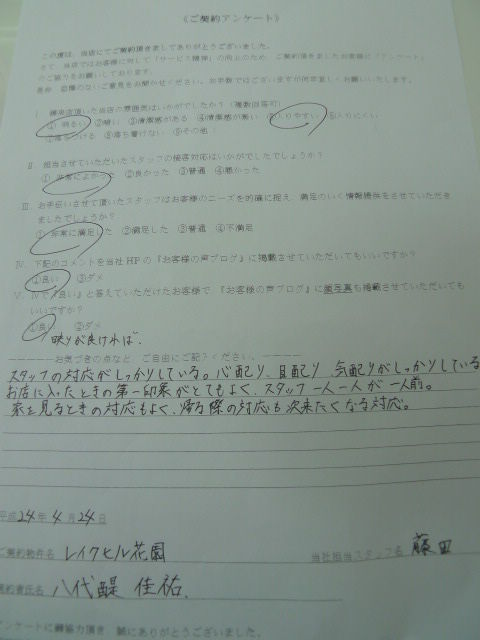 《ご契約アンケート》
この度は、当店にてご契約頂きましてありがとうございました。
さて、当店ではお客様に対して「サービス精神」の向上のため、ご契約頂きましたお客様に「アンケート」
のご協力をお願いしております。
是非、皆様のないご意見をお聞かせください。お手数ではございますが何卒宜しくお願いいたします。
Ⅰ 御来店頂いた当店の雰囲気はいかがでしたか?(複数回答可)
① 明るい ②暗い ③清潔感がある ④清潔感が無い ⑤入りやすい ⑥入りにくい
⑦落ちつける ⑧落ち着けない ⑨その他(
Ⅱ. 担当させていただいたスタッフの接客対応はいかがでしたでしょうか?
① 非常によかった ②良かった ③普通 ④悪かった
Ⅲ. お手伝いさせて頂いたスタッフはお客様のニーズを的確に捉え、満足のいく情報提供をさせていただき
ましたでしょうか?
① 非常に満足した ②満足した ③普通 ④不満足
Ⅳ. 下記のコメントを当社HPの『お客様の声ブログ』に掲載させていただいてもいいですか?
①良い ②ダメ
Ⅴ. Ⅳで『良い』と答えていただけたお客様で『お客様の声ブログ』に顔写真も掲載させていただいても
いいですか?
①良い ②ダメ
映りが良ければ。
―――――お気づきの点など、ご自由にご記入ください。―――――
スタッフの対応がしっかりしている。心配り、目配り、気配りがしっかりしている
お店に入ったときの第一印象がとてもよく、スタッフ一人一人が一人前。
家を見るときの対応もよく、帰る際の対応も次来たくなる対応。
平成24年4月24日
ご契約物件名 レイクヒル花園
当社担当スタッフ名 藤田
契約者氏名 八代醍 佳祐.
アンケートに御協力頂き、誠にありがとうございました。